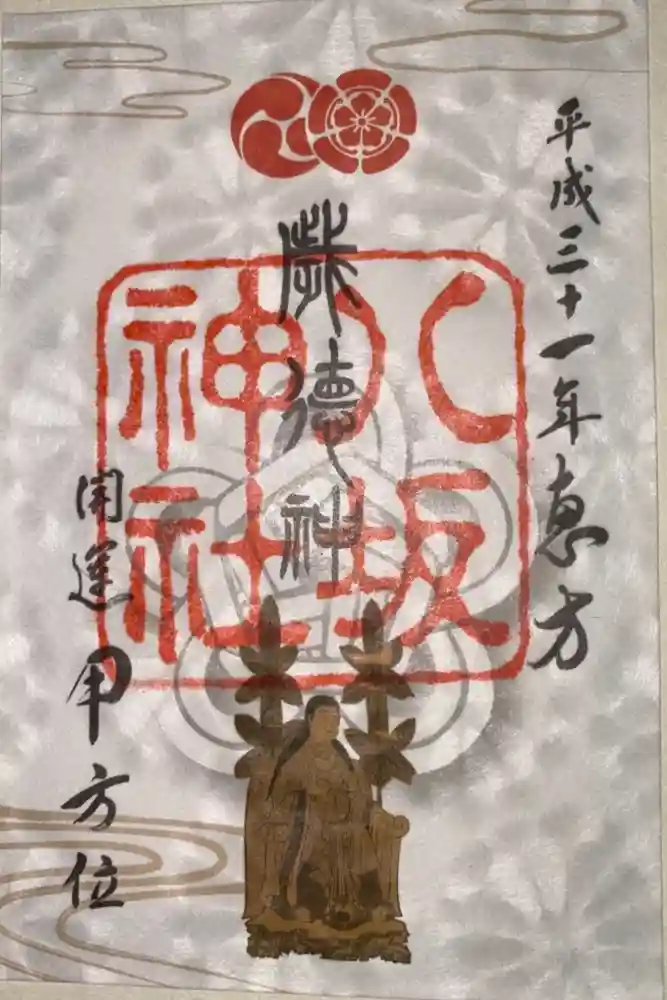 平成三十一年恵方
歳徳神
八坂
神社
開運甲方位